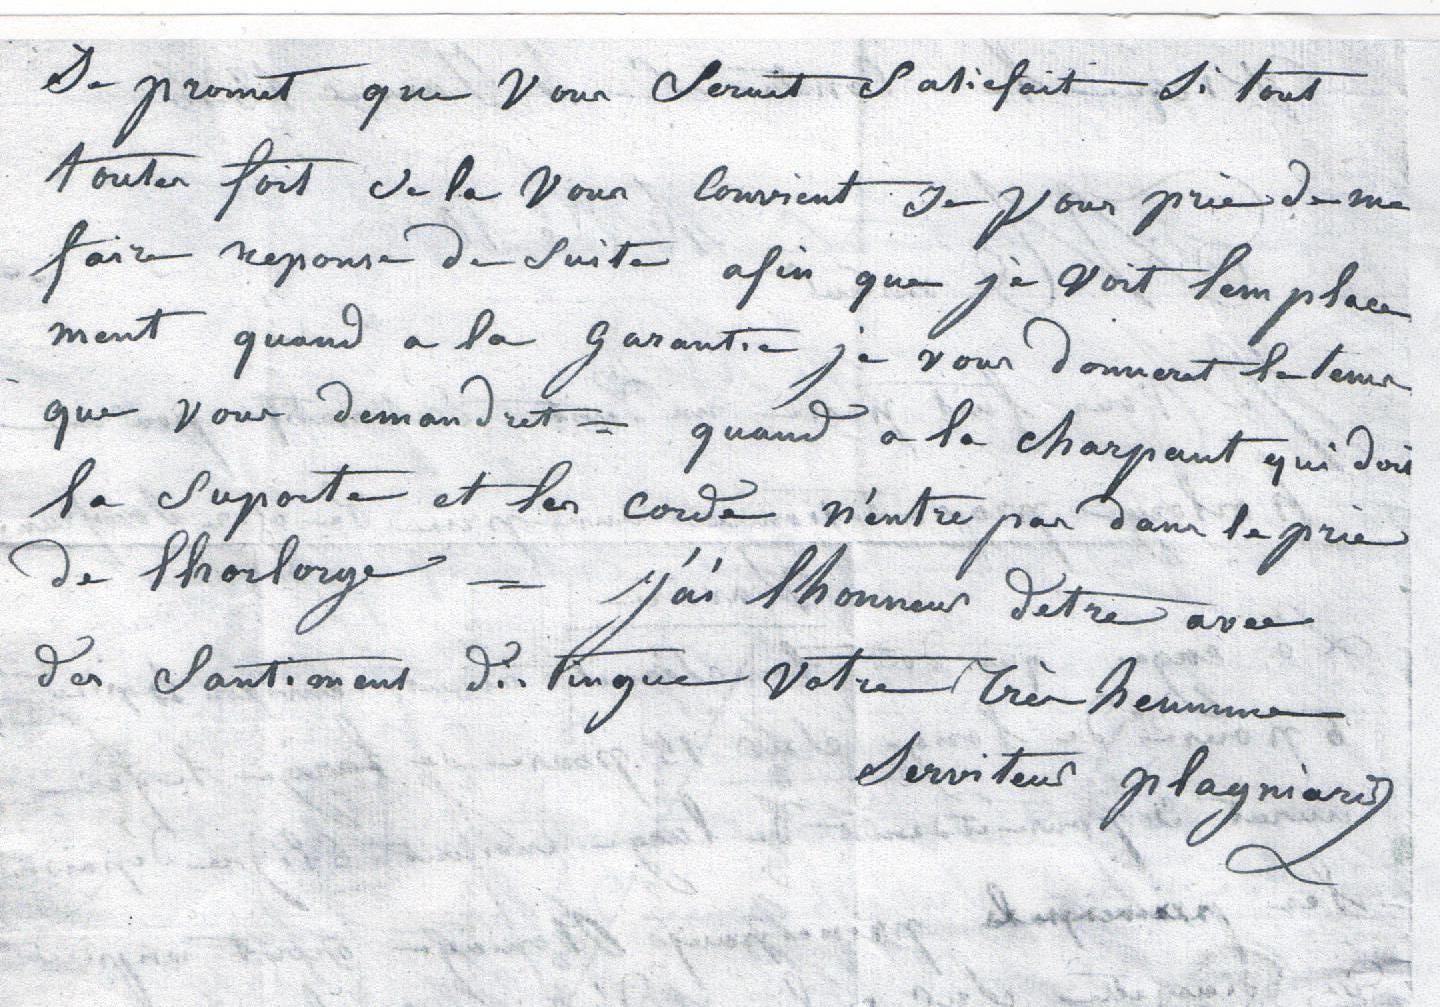 Je promet que vous serait satisfait si tout
toutes foit cela vous convient je vous prie de me
faire reponse de suite afin que je voit lemplace
ment quand a la garantie je vous donneret le tems
que vous demandret = quand a la charpaut qui doit
la suporte et les corde n'entre pas dans le prie
de lhorlorge = j'ai lhonneur detre avec
des santiment distingue votre très heumme
serviteur plagniard